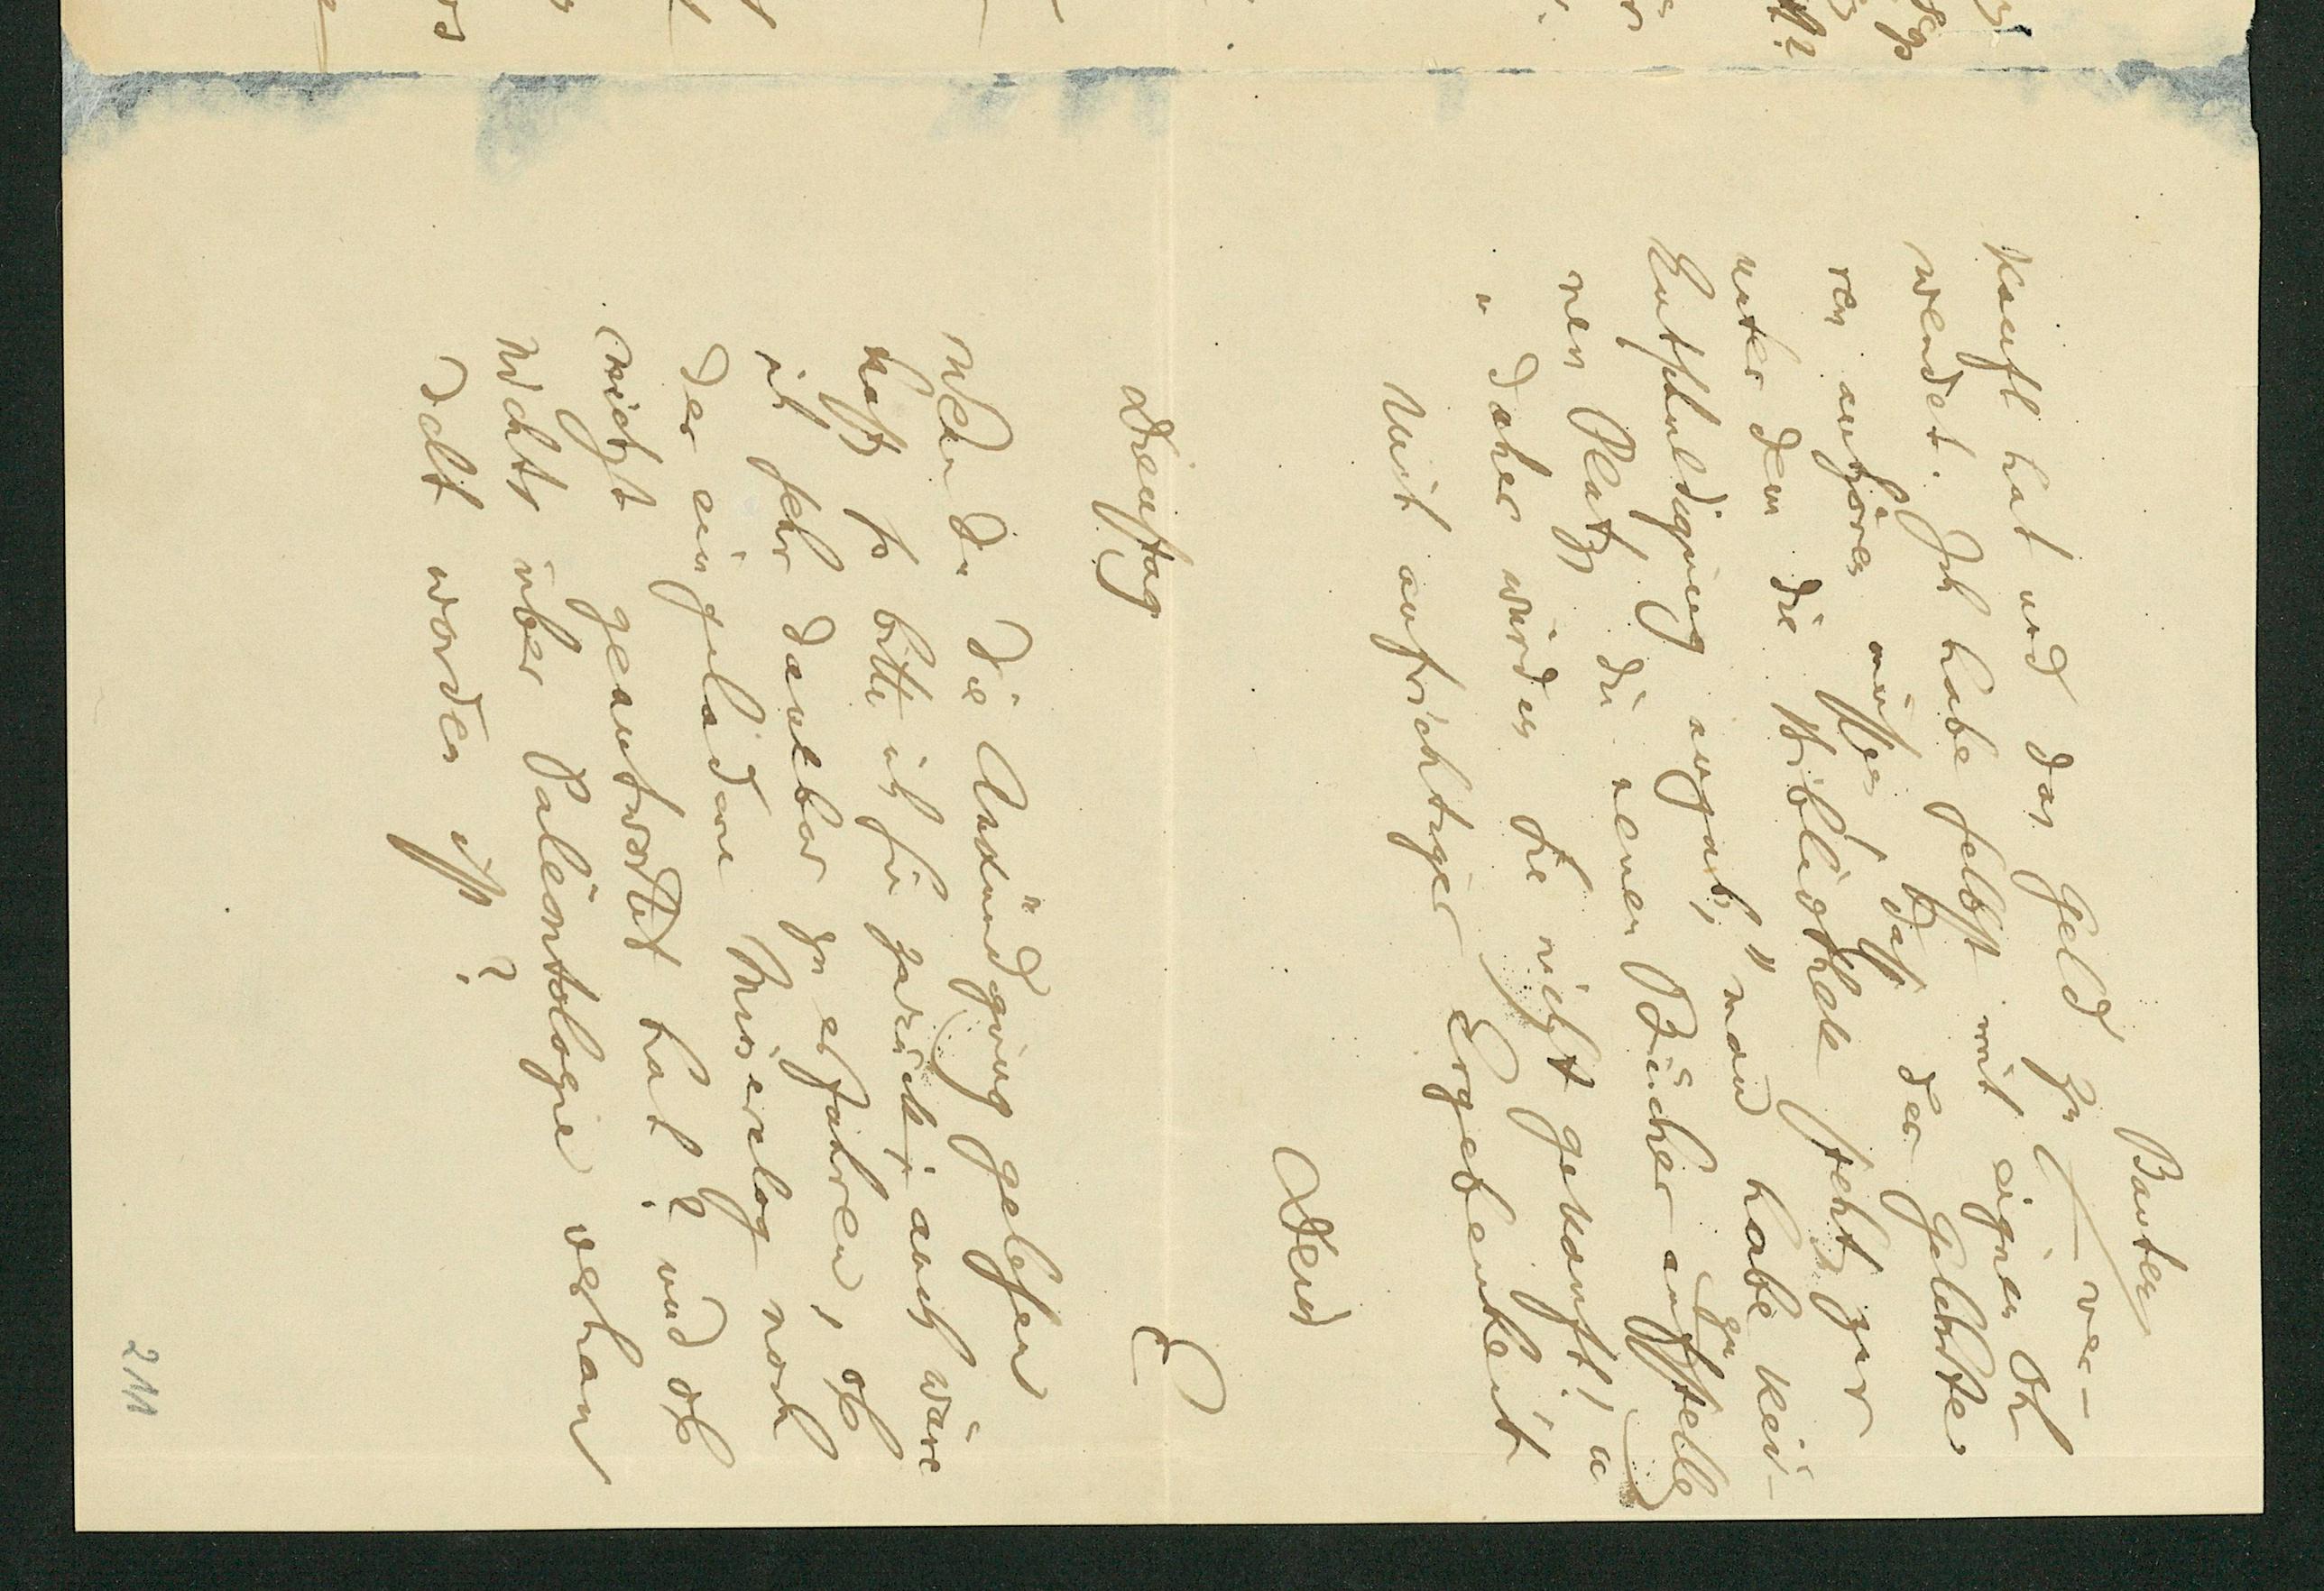 Bauten
kauft hat und das Geld zu ver-
wendet. Ich habe selbst mit eignen Oh
ren anhören müssen, daß der Gelehrte
unter dem die Bibliothek steht zur
Entschuldigung angab, "man habe kei-
nen Platz die neuen Bücher aufzustellen
"daher würden sie nicht gekauft! u
Mit aufrichtiger Ergebenheit
Dein
E
Dienstag
Wenn Du die Ankündigung gelesen
hast so bitte ich sie zurück; auch wäre
ich sehr dankbar zu erfahren, ob
der eingeladene Mineralog noch
nicht geantwortet hat? und ob
Nichts über Paleontologie verhan
delt worden ist?
211